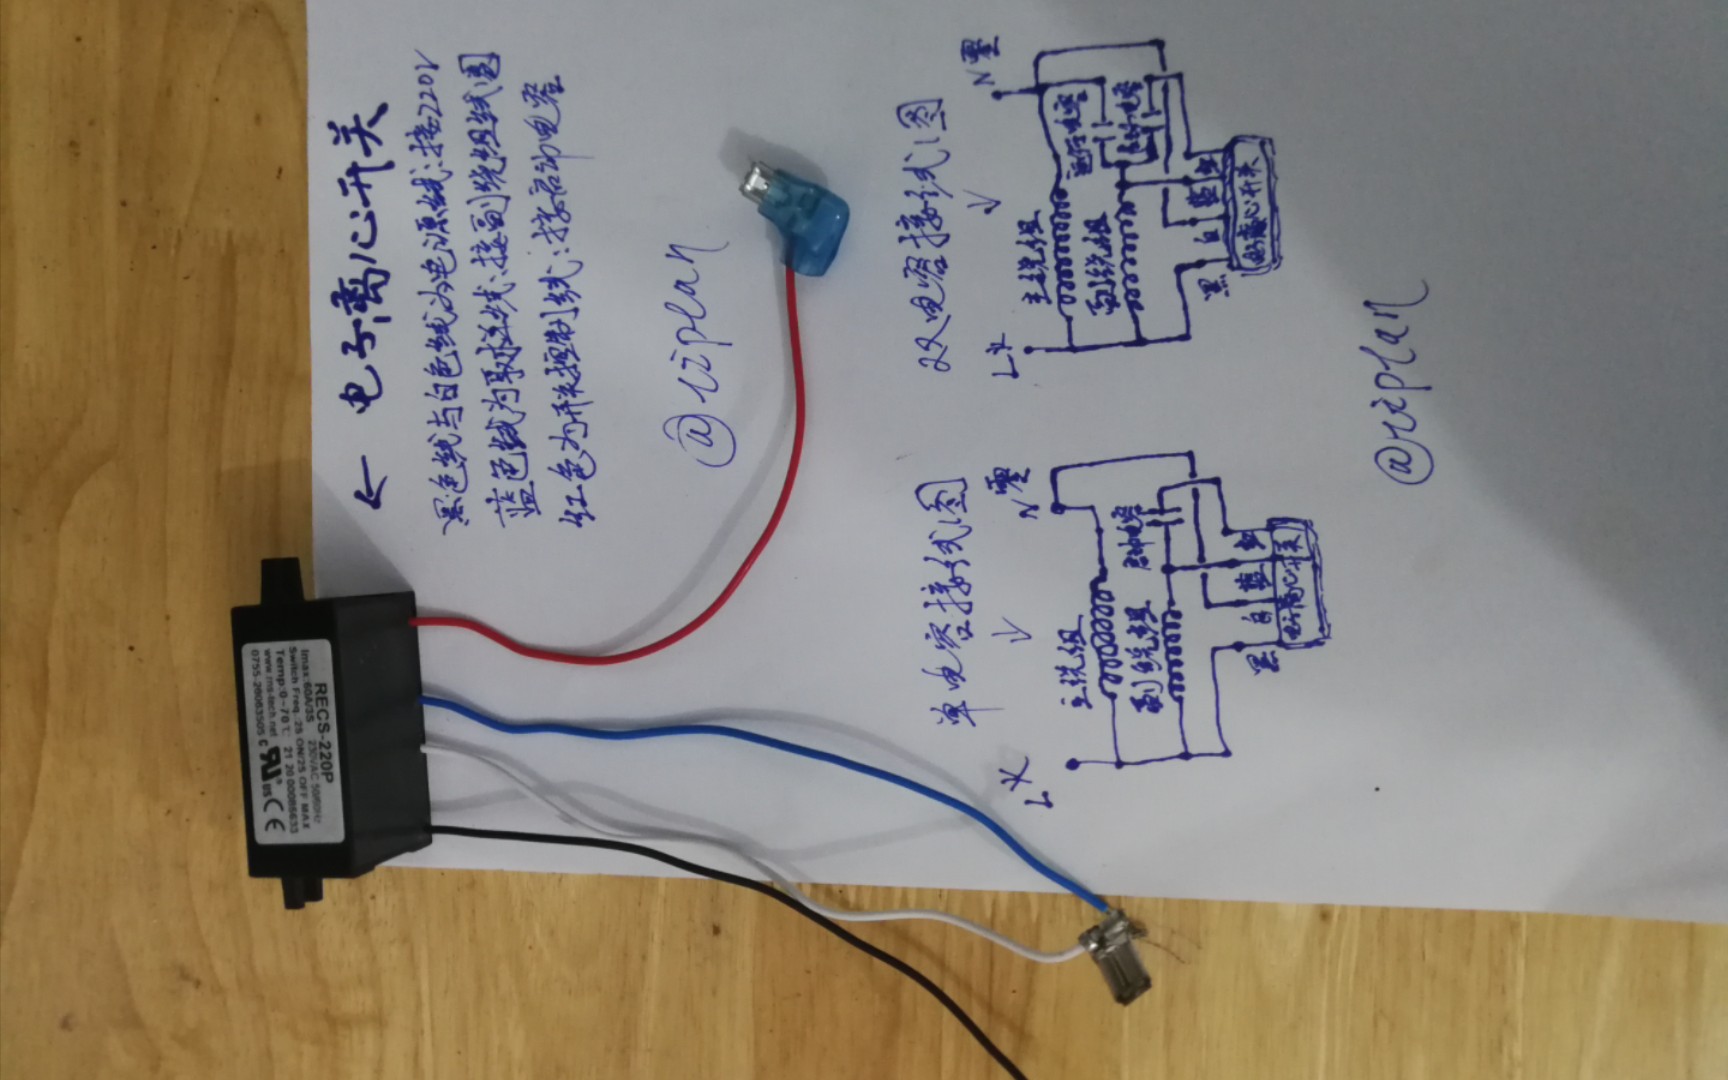 ← 电子离心开关
黑色线与白色线为电源线:接220V
蓝色线为取样线:接副绕组线圈
红色为开关控制线:接启动电容
@riplan
双电容接线图
N零
运行电容
启动电容
主绕组
副绕组
L火
红
蓝
白
黑
电子离心开关
单电容接线图
N零
启动电容
主绕组
副绕组
L火
红
蓝
白
黑
电子离心开关
@riplan
RECS-220P
Imax:60A/3S 230VAC 50/60Hz
Switch Freq.:2S ON/2S OFF MAX
Temp:0~70℃ 21 20 00086633
www.ms-tech.net
0755-26063505